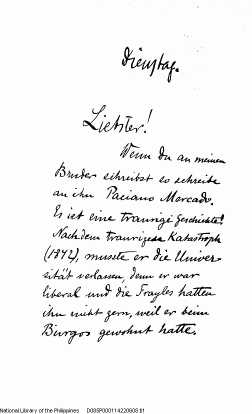 Dienstag.
Liebster!
Wenn du an meinen
Bruder schreibst so schreibe
an ihn Paciano Mercado.
Es ist eine traurige Geschichte!
Nach dem traurigen Katastroph
(1872), musste er die Univer
sität verlassen, denn er war
liberal und die Frayles hatten
ihn nicht gern, weil er beim
Burgos gewohnt hatte.
National Library of the Philippines